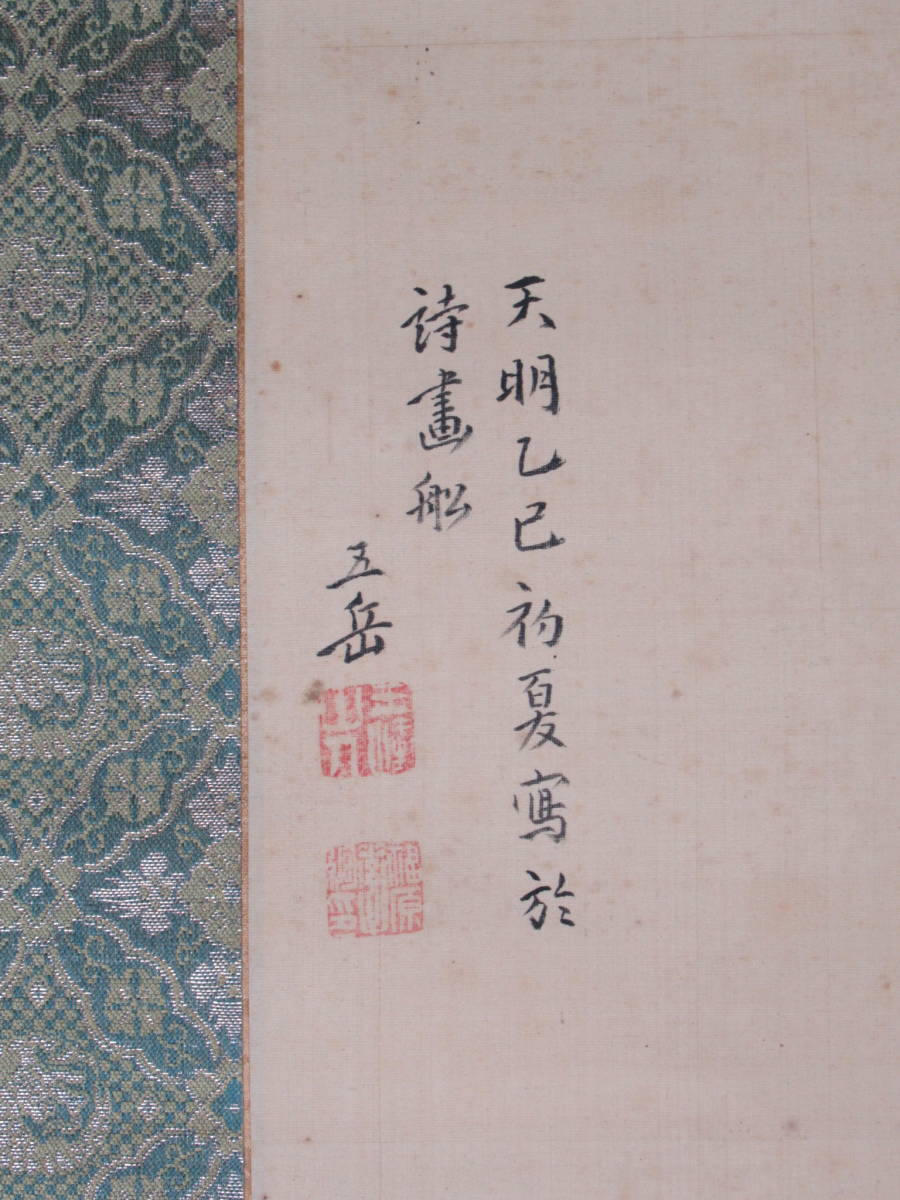 天明乙巳初夏寫於
詩畫舩
五岳